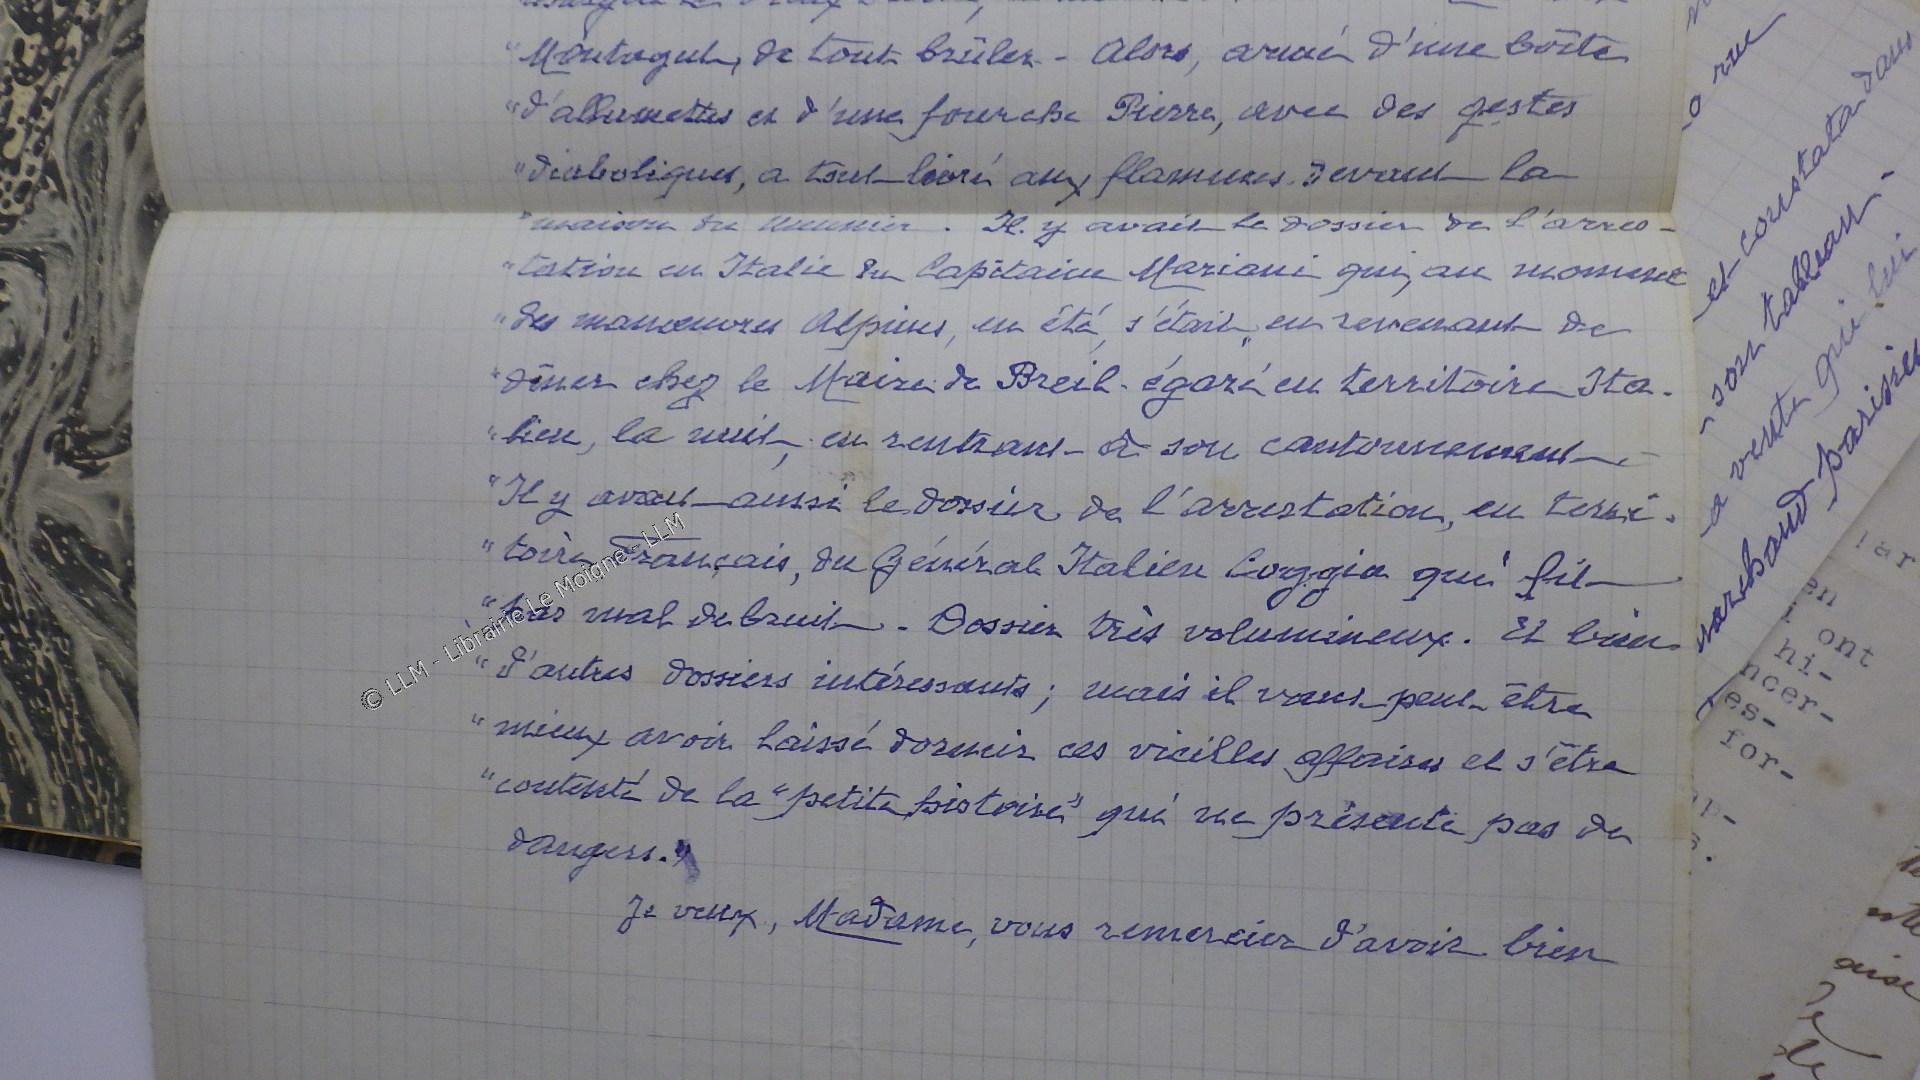 "Montagut, de tout brûler - Alors, armé d'une boîte
"d'allumettes et d'une fourche Pierre, avec des gestes
"diaboliques, a tout livré aux flammes devant la
"maison du meunier. Il y avait le dossier de l'arres-
"tation en Italie du Capitaine Mariani qui, au moment
"des manœuvres Alpines, en été, s'était, en revenant de
"dîner chez le Maire de Breil - égaré en territoire Ita-
"lien, la nuit, en rentrant à son cantonnement -
"Il y avait aussi le dossier de l'arrestation, en terri-
"toire Français, du Général Italien Coggia qui fit
"pas mal de bruit - Dossier très volumineux. Et bien
"d'autres dossiers intéressants ; mais il vaut peut être
"mieux avoir laissé dormir ces vieilles affaires et s'être
"contenté de la "petite histoire" qui ne présente pas de
dangers."
Je veux, Madame, vous remercier d'avoir bien
© LLM - Librairie Le Moigne - LLM
o rue
et constata dans
son tableau -
a vente qui lui
marchand parisien
lar
en
i ont
hi-
ncer-
es-
for-
op-
s.
aise
de